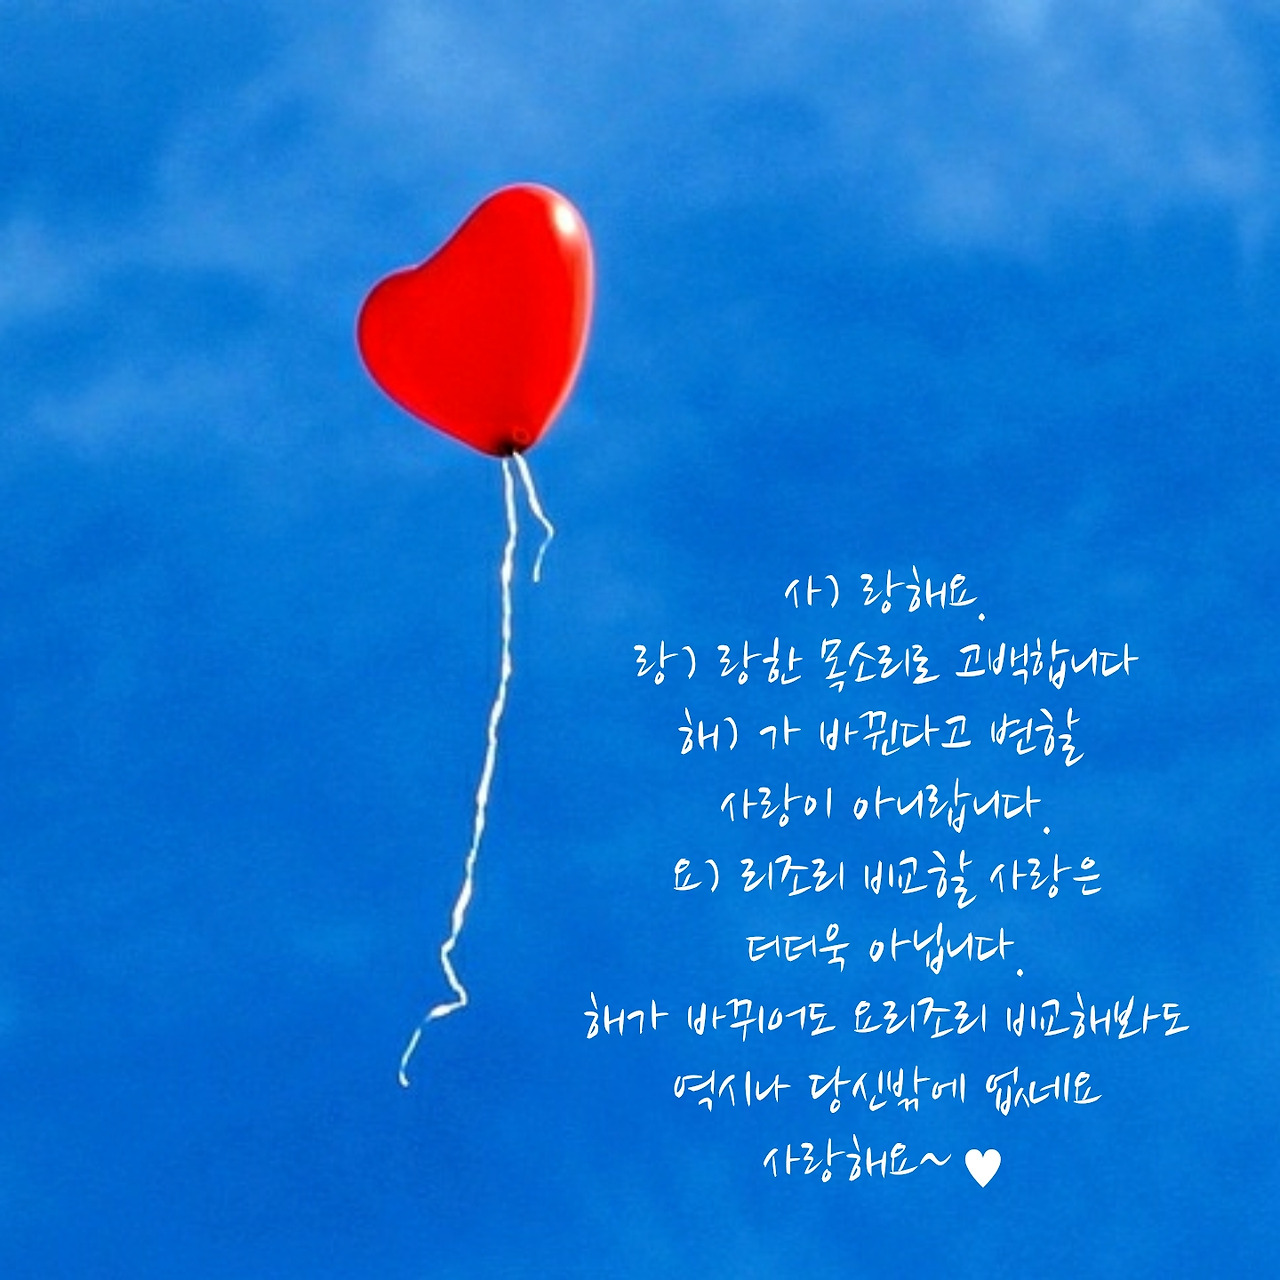 사) 랑해요.
랑) 랑한 목소리로 고백합니다
해) 가 바뀐다고 변할
사랑이 아니랍니다.
요) 리조리 비교할 사랑은
더더욱 아닙니다.
해가 바뀌어도 요리조리 비교해봐도
역시나 당신밖에 없네요
사랑해요~ ♥